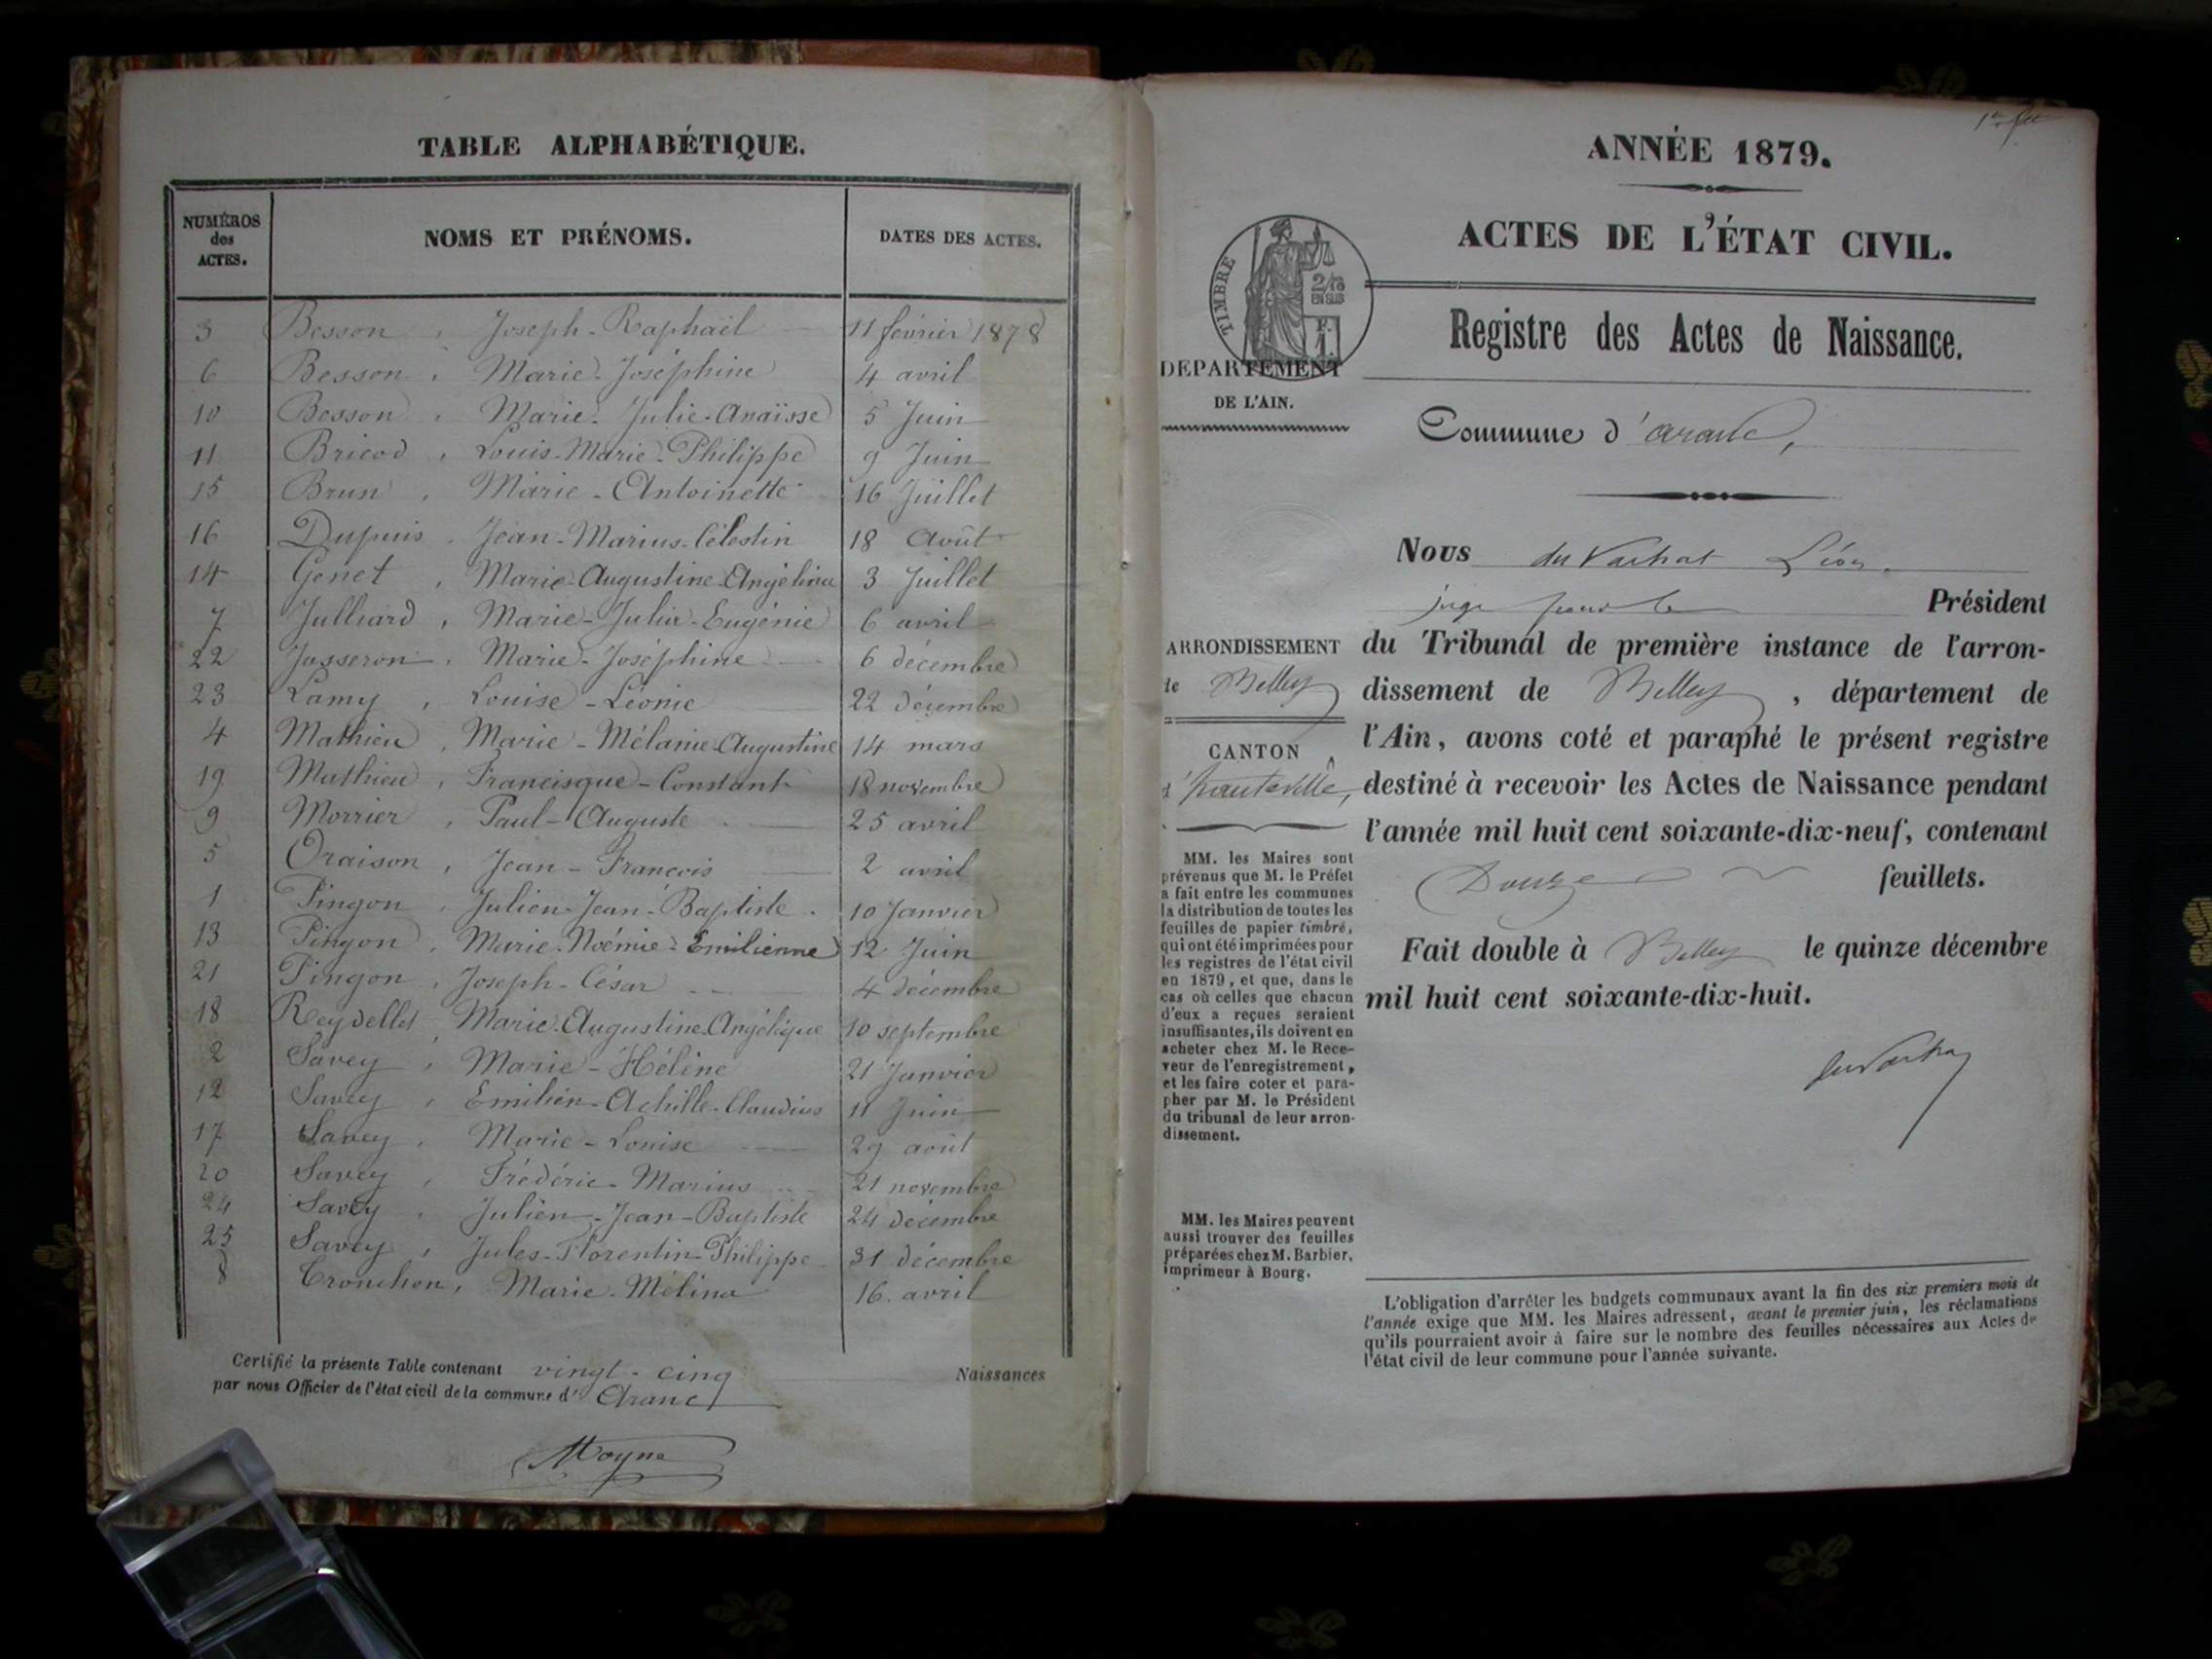 TABLE ALPHABÉTIQUE.
NUMÉROS des ACTES. NOMS ET PRÉNOMS. DATES DES ACTES.
3 Besson, Joseph-Raphaël 11 février 1878
6 Besson, Marie-Joséphine 4 avril
10 Besson, Marie-Julie-Anaïsse 5 Juin
11 Bricod, Louis-Marie-Philippe 9 Juin
15 Brun, Marie-Antoinette 16 Juillet
16 Dupuis, Jean-Marius-Célestin 18 Août
14 Genet, Marie-Augustine-Angélina 3 Juillet
7 Julliard, Marie-Julia-Eugénie 6 avril
22 Jasseron, Marie-Joséphine 6 décembre
23 Lamy, Louise-Léonie 22 décembre
4 Mathieu, Marie-Mélanie-Augustine 14 mars
19 Mathieu, Francisque-Constant 18 novembre
9 Morrier, Paul-Auguste 25 avril
5 Oraison, Jean-François 2 avril
1 Pingon, Julien-Jean-Baptiste 10 Janvier
13 Pingon, Marie-Noémie-Emilienne 12 Juin
21 Pingon, Joseph-César 4 décembre
18 Reydellet, Marie-Augustine-Angélique 10 septembre
2 Savey, Marie-Hélène 21 Janvier
12 Savey, Emilien-Achille-Claudius 11 Juin
17 Savey, Marie-Louise 29 août
20 Savey, Frédéric-Marius 21 novembre
24 Savey, Julien-Jean-Baptiste 24 décembre
25 Savey, Jules-Florentin-Philippe 31 décembre
8 Tronchon, Marie-Mélina 16 avril
Certifié la présente Table contenant vingt-cinq Naissances
par nous Officier de l'état civil de la commune d' Aranc
Moyne
ANNÉE 1879.
ACTES DE L'ÉTAT CIVIL.
TIMBRE
2/10
EN SUS
F.
1.
Registre des Actes de Naissance.
DEPARTEMENT
DE L'AIN.
Commune d'aranc,
Nous du Vachat Léon,
juge pour le Président
ARRONDISSEMENT
de Belley
CANTON
d'hauteville,
du Tribunal de première instance de l'arron-
dissement de Belley, département de
l'Ain, avons coté et paraphé le présent registre
destiné à recevoir les Actes de Naissance pendant
l'année mil huit cent soixante-dix-neuf, contenant
Douze feuillets.
Fait double à Belley le quinze décembre
mil huit cent soixante-dix-huit.
du Vachat
MM. les Maires sont
prévenus que M. le Préfet
a fait entre les communes
la distribution de toutes les
feuilles de papier timbré,
qui ont été imprimées pour
les registres de l'état civil
en 1879, et que, dans le
cas où celles que chacun
d'eux a reçues seraient
insuffisantes, ils doivent en
acheter chez M. le Rece-
veur de l'enregistrement,
et les faire coter et para-
pher par M. le Président
du tribunal de leur arron-
dissement.
MM. les Maires peuvent
aussi trouver des feuilles
préparées chez M. Barbier,
imprimeur à Bourg.
L'obligation d'arrêter les budgets communaux avant la fin des six premiers mois de
l'année exige que MM. les Maires adressent, avant le premier juin, les réclamations
qu'ils pourraient avoir à faire sur le nombre des feuilles nécessaires aux Actes de
l'état civil de leur commune pour l'année suivante.